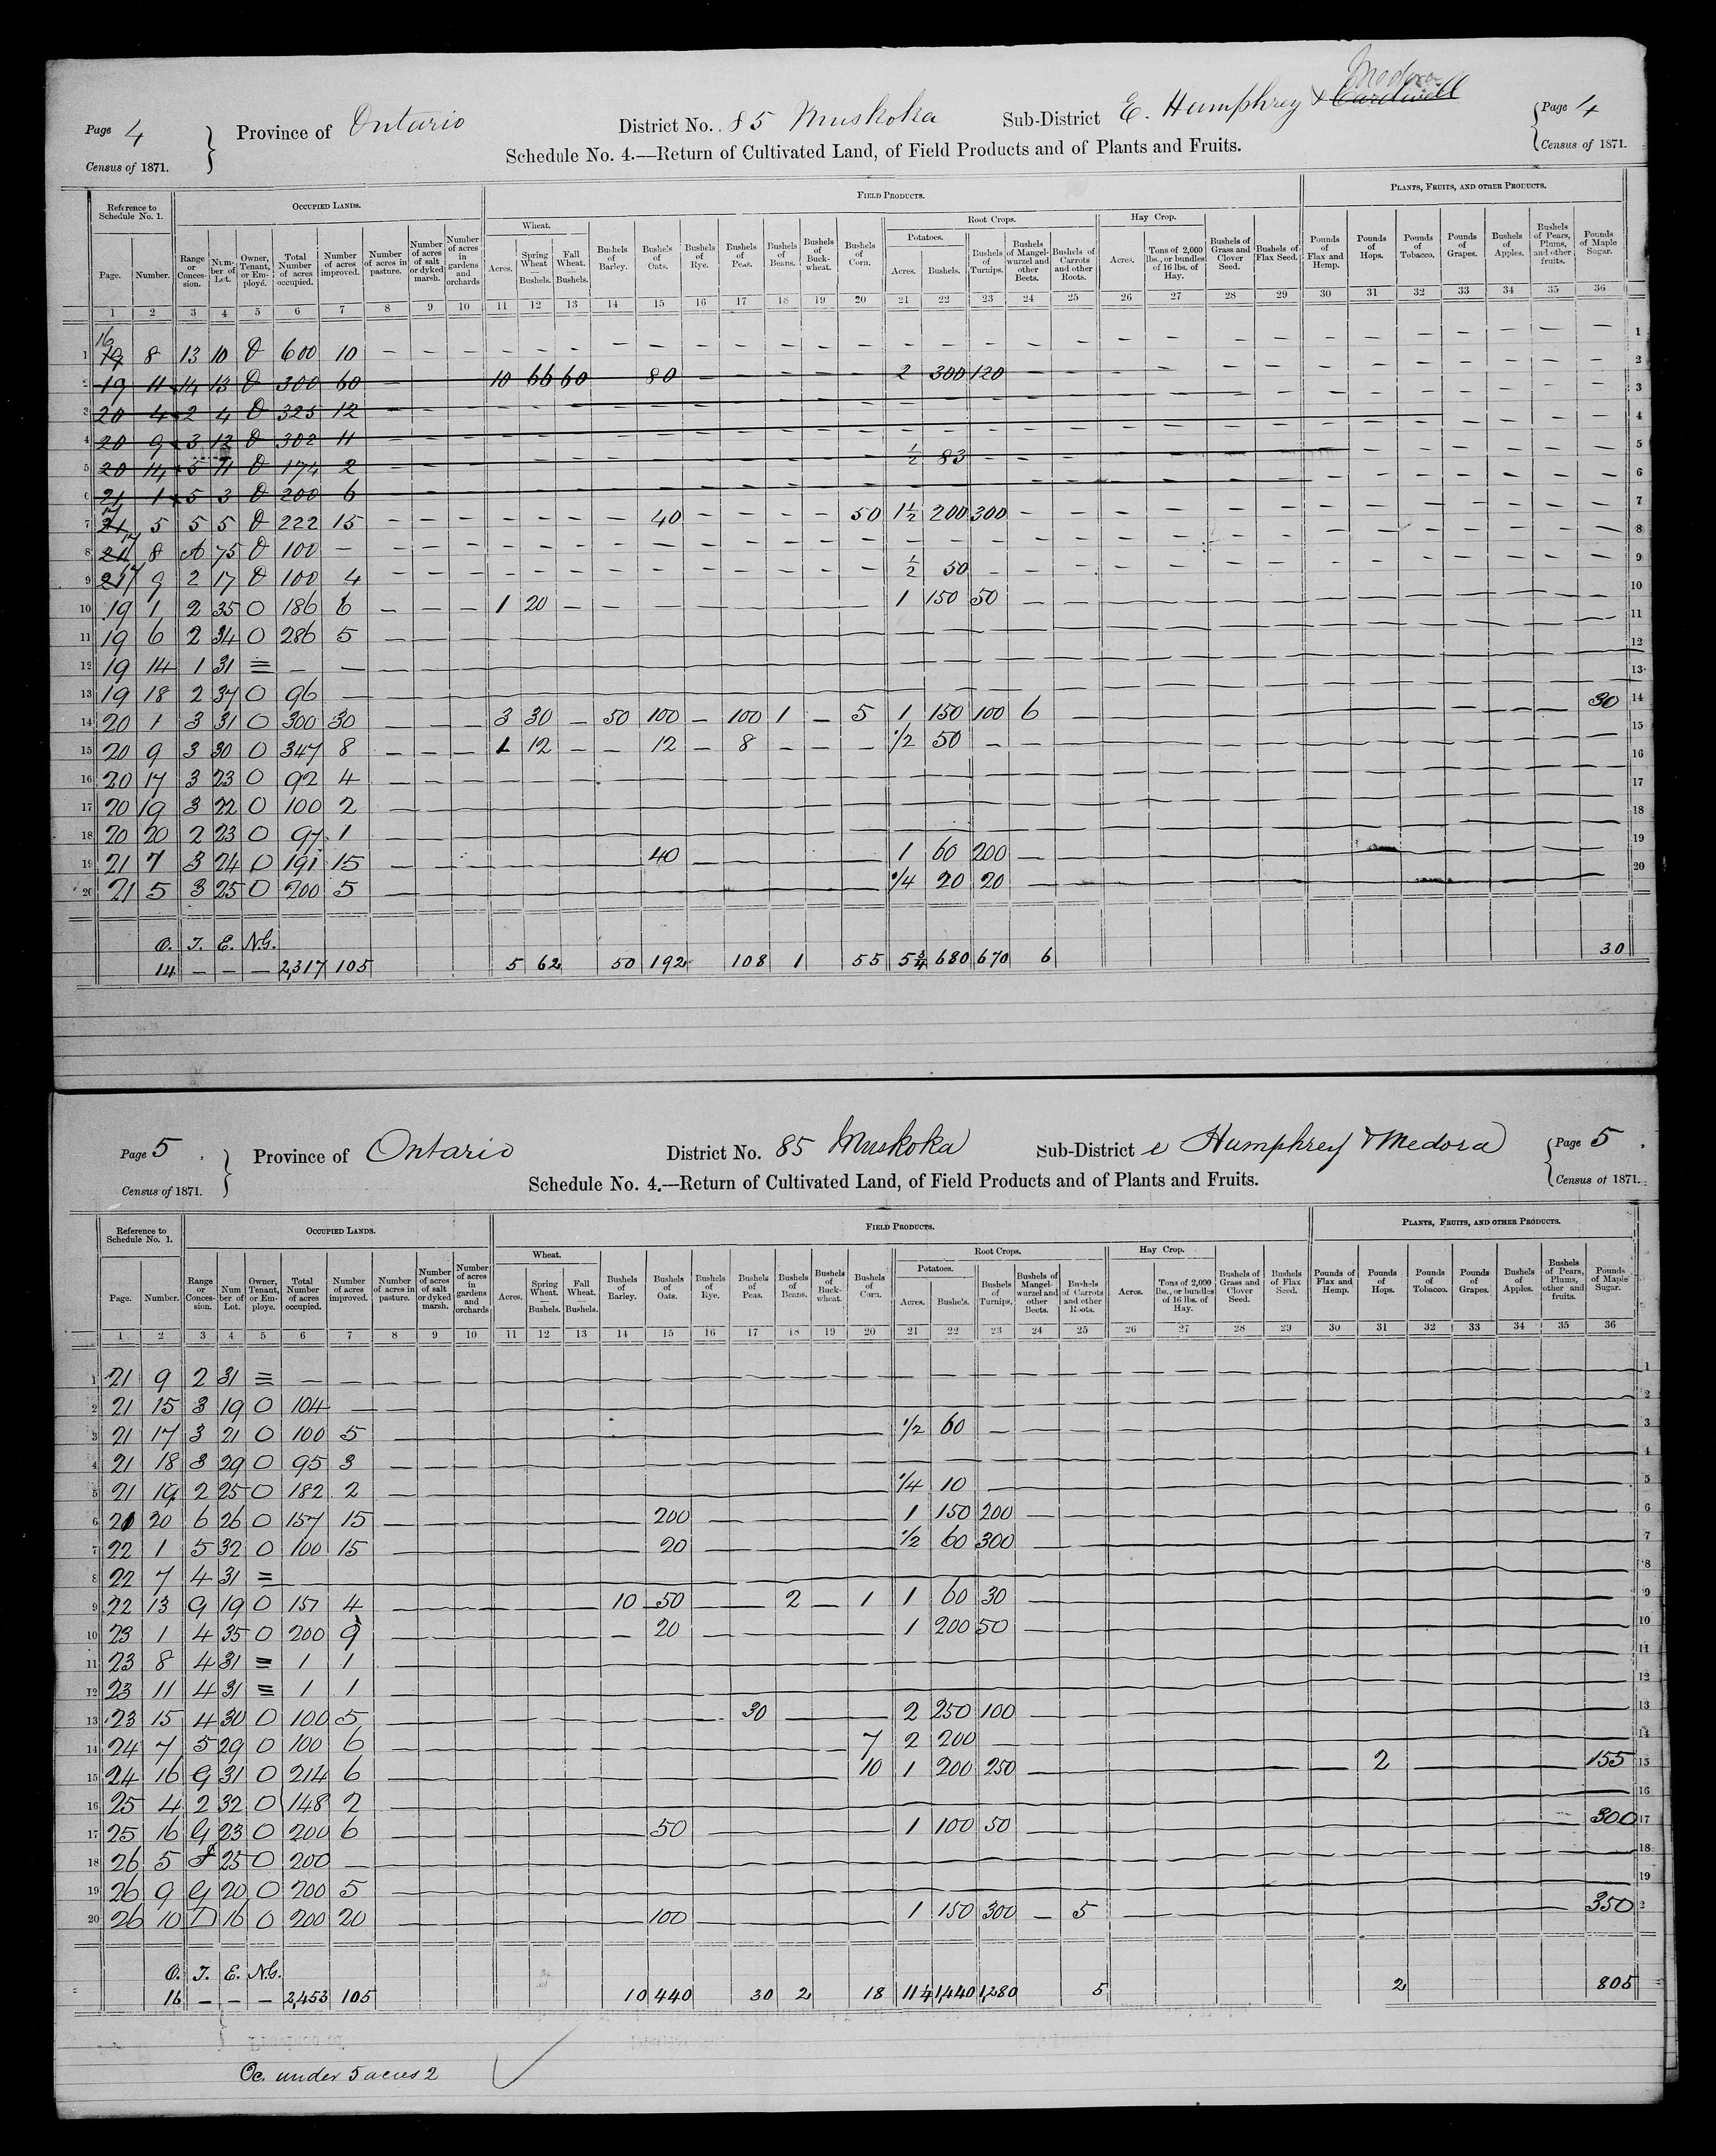 Medora
Page 4 Province of Ontario District No. 85 Muskoka Sub-District E. Humphrey & Cardwell Page 4
Census of 1871. Schedule No. 4.—Return of Cultivated Land, of Field Products and of Plants and Fruits. Census of 1871.
Reference to Schedule No. 1. OCCUPIED LANDS. FIELD PRODUCTS. PLANTS, FRUITS, AND OTHER PRODUCTS.
Wheat. Root Crops. Potatoes. Hay Crop.
Page. Number. Range or Concession. Number of Lot. Owner, Tenant, or Employé. Total Number of acres occupied. Number of acres improved. Number of acres in pasture. Number of acres of salt or dyked marsh. Number of acres in gardens and orchards Acres. Spring Wheat — Bushels. Fall Wheat. — Bushels. Bushels of Barley. Bushels of Oats. Bushels of Rye. Bushels of Peas. Bushels of Beans. Bushels of Buckwheat. Bushels of Corn. Acres. Bushels. Bushels of Turnips. Bushels of Mangel-wurzel and other Beets. Bushels of Carrots and other Roots. Acres. Tons of 2,000 lbs., or bundles of 16 lbs. of Hay. Bushels of Grass and Clover Seed. Bushels of Flax Seed. Pounds of Flax and Hemp. Pounds of Hops. Pounds of Tobacco. Pounds of Grapes. Bushels of Apples. Bushels of Pears, Plums, and other fruits. Pounds of Maple Sugar.
1 2 3 4 5 6 7 8 9 10 11 12 13 14 15 16 17 18 19 20 21 22 23 24 25 26 27 28 29 30 31 32 33 34 35 36
16
1 19 8 13 10 O 600 10 1
2 19 11 14 13 O 300 60 10 66 60 80 2 300 120 2
3 20 4 2 4 O 325 12 3
4 20 9 3 12 O 302 11 4
5 20 14 5 11 O 174 2 1/2 83 5
6 21 1 5 3 O 200 6 6
17
7 21 5 5 5 O 222 15 40 50 1 1/2 200 300 7
17
8 21 8 A 75 O 100 — 8
17
9 21 9 2 17 O 100 4 1/2 50 9
10 19 1 2 35 O 186 6 1 20 1 150 50 10
11 19 6 2 34 O 286 5 11
12 19 14 1 31 = — — 12
13 19 18 2 37 O 96 — 13
14 20 1 3 31 O 300 30 3 30 — 50 100 — 100 1 — 5 1 150 100 6 30 14
15 20 9 3 30 O 347 8 1 12 — — 12 — 8 — — — 1/2 50 15
16 20 17 3 23 O 92 4 16
17 20 19 3 22 O 100 2 17
18 20 20 2 23 O 97 1 18
19 21 7 3 24 O 191 15 40 1 60 200 19
20 21 5 3 25 O 200 5 1/4 20 20 20
O. T. E. N.G.
14 — — — 2,317 105 5 62 50 192 108 1 55 5 3/4 680 670 6 30
Page 5 Province of Ontario District No. 85 Muskoka Sub-District e Humphrey & Medora Page 5
Census of 1871. Schedule No. 4.—Return of Cultivated Land, of Field Products and of Plants and Fruits. Census of 1871.
Reference to Schedule No. 1. OCCUPIED LANDS. FIELD PRODUCTS. PLANTS, FRUITS, AND OTHER PRODUCTS.
Wheat. Root Crops. Potatoes. Hay Crop.
Page. Number. Range or Concession. Number of Lot. Owner, Tenant, or Employe. Total Number of acres occupied. Number of acres improved. Number of acres in pasture. Number of acres of salt or dyked marsh. Number of acres in gardens and orchards Acres. Spring Wheat. — Bushels. Fall Wheat. — Bushels. Bushels of Barley. Bushels of Oats. Bushels of Rye. Bushels of Peas. Bushels of Beans. Bushels of Buckwheat. Bushels of Corn. Acres. Bushels. Bushels of Turnips. Bushels of Mangel-wurzel and other Beets. Bushels of Carrots and other Roots. Acres. Tons of 2,000 lbs., or bundles of 16 lbs. of Hay. Bushels of Grass and Clover Seed. Bushels of Flax Seed. Pounds of Flax and Hemp. Pounds of Hops. Pounds of Tobacco. Pounds of Grapes. Bushels of Apples. Bushels of Pears, Plums, other and fruits. Pounds of Maple Sugar.
1 2 3 4 5 6 7 8 9 10 11 12 13 14 15 16 17 18 19 20 21 22 23 24 25 26 27 28 29 30 31 32 33 34 35 36
1 21 9 2 31 = — — 1
2 21 15 3 19 O 104 — 2
3 21 17 3 21 O 100 5 1/2 60 3
4 21 18 3 29 O 95 3 4
5 21 19 2 25 O 182 2 1/4 10 5
6 21 20 6 26 O 157 15 200 1 150 200 6
7 22 1 5 32 O 100 15 20 1/2 60 300 7
8 22 7 4 31 = 8
9 22 13 G 19 O 151 4 10 50 2 — 1 1 60 30 9
10 23 1 4 35 O 200 9 20 1 200 50 10
11 23 8 4 31 = 1 1 11
12 23 11 4 31 = 1 1 12
13 23 15 4 30 O 100 5 30 2 250 100 13
14 24 7 5 29 O 100 6 7 2 200 14
15 24 16 G 31 O 214 6 10 1 200 250 2 155 15
16 25 4 2 32 O 148 2 16
17 25 16 G 23 O 200 6 50 1 100 50 300 17
18 26 5 25 O 200 — 18
19 26 9 G 20 O 200 5 19
20 26 10 D 16 O 200 20 100 1 150 300 — 5 350 2
O. T. E. N.G.
16 — — — 2,453 105 10 440 30 2 18 11 1/4 1,440 1,280 5 2 805
Oc. under 5 acres 2